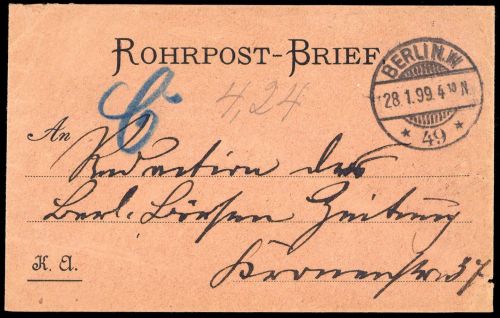 ROHRPOST-BRIEF
BERLIN.W.
28.1.99.4 10 N.
* 49 *
4,24
An
Redaction des
Berl. Börsen Zeitung
Kronenstr 37.
K. A.